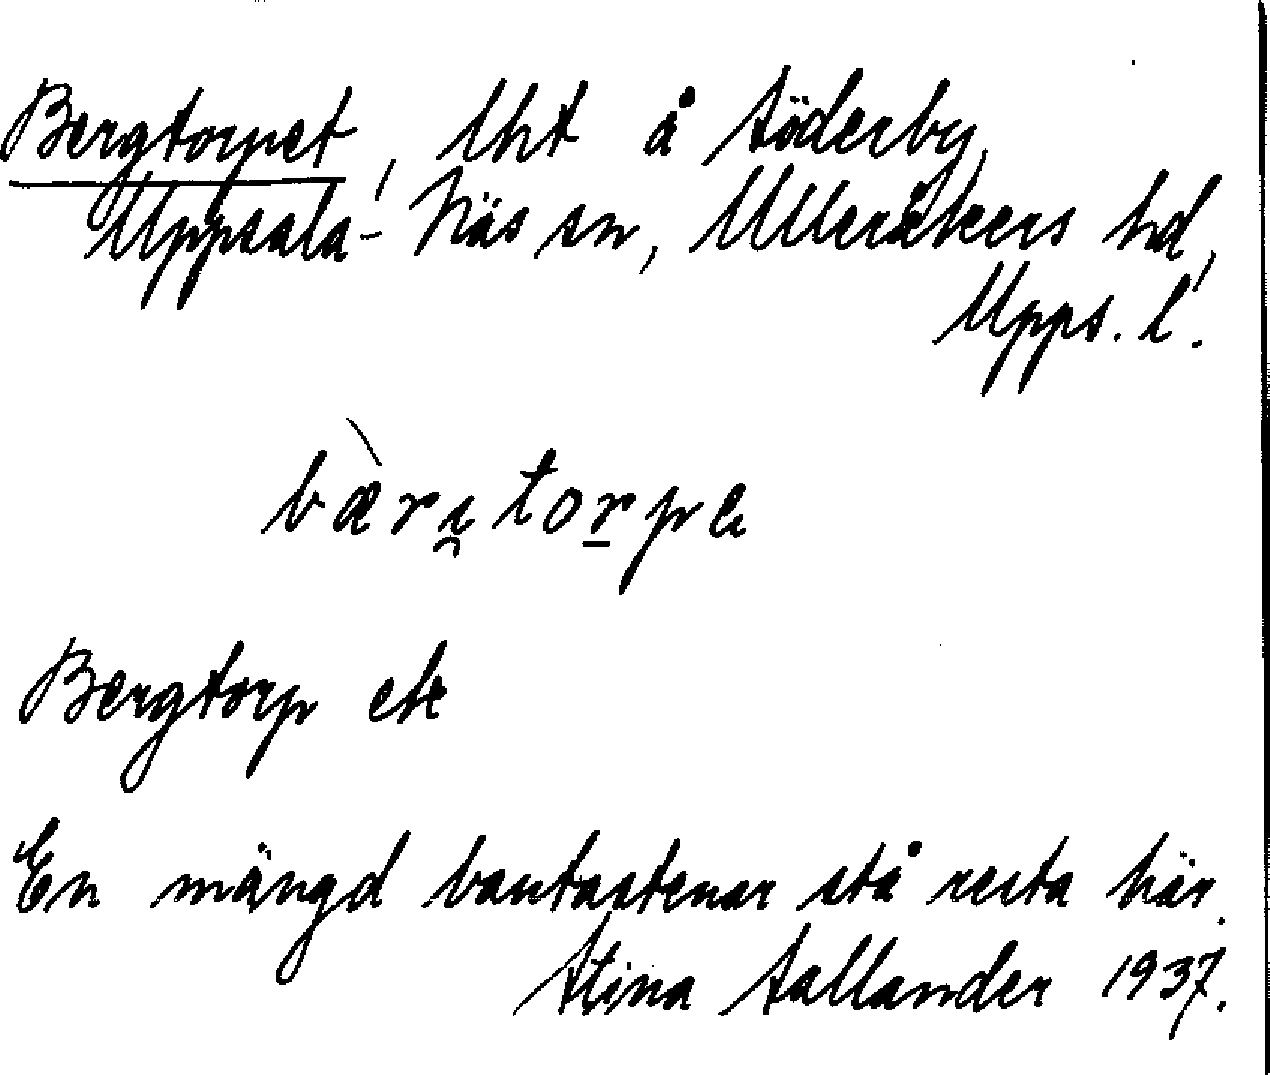 Bergtorpet, lht å Söderby,
Uppsala-Näs sn, Ulleråkers hd,
Upps. l.
bæ̀ri̯torpe
Bergtorp ek
En mängd bautastenar stå resta här.
Stina Sallander 1937.